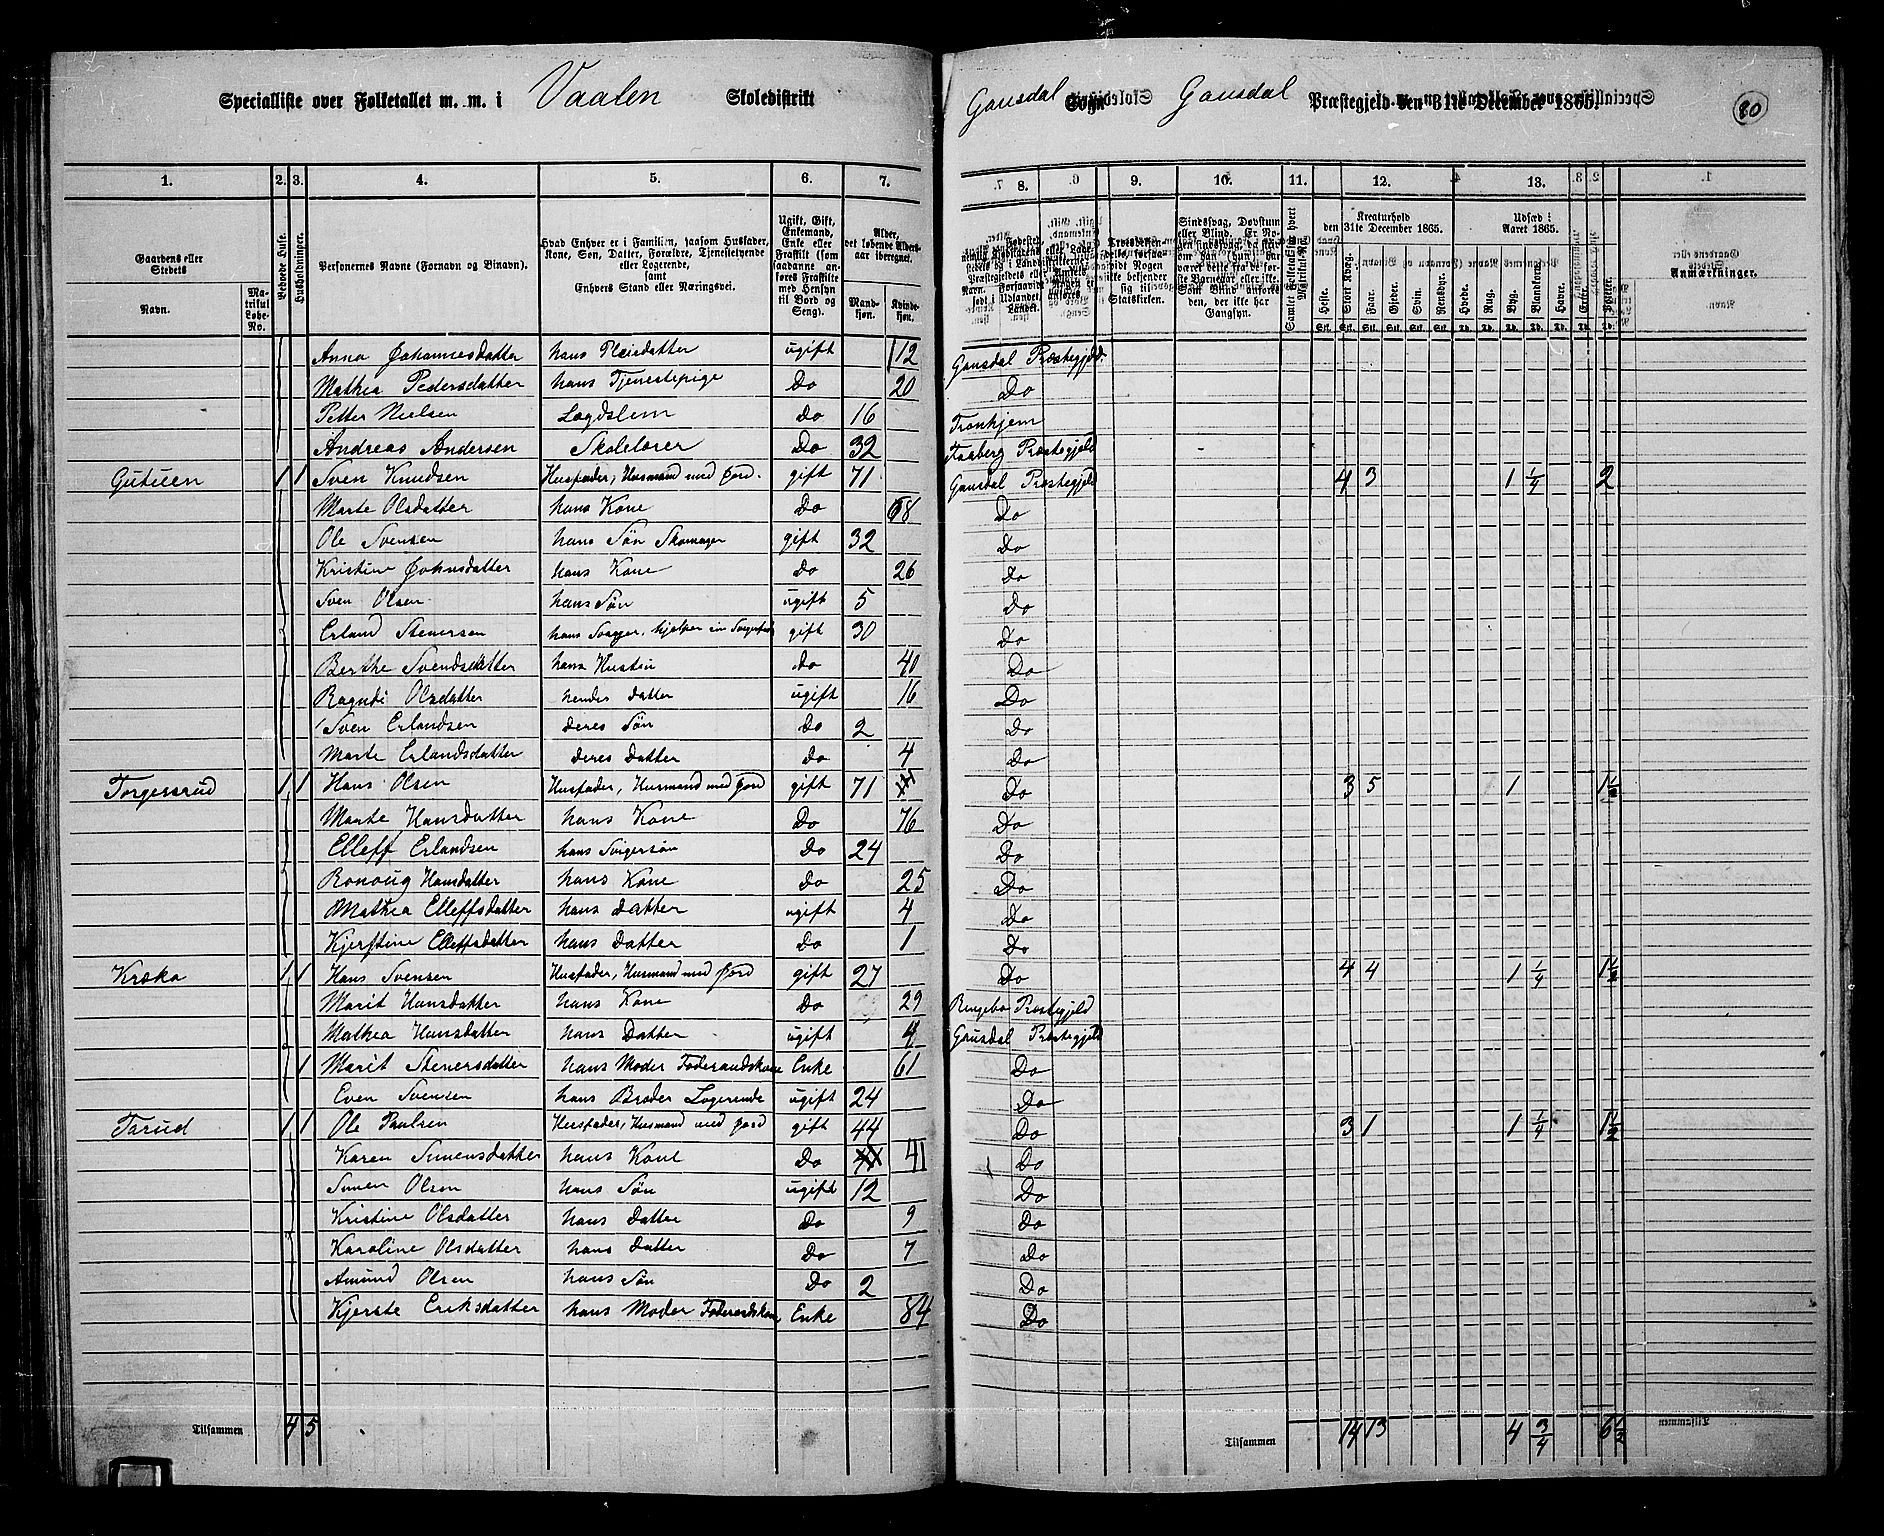 Specialliste over Folketallet m. m. i Vaalen Skoledistrikt
Gausdal Sogn Gausdal Præstegjeld den 31te December 1865.
80
1. 2. 3. 4. 5. 6. 7. 8. 9. 10. 11. 12. 13.
Gaardens eller Stedets
Navn.
Matrikul Løbe-No.
Beboede Huse.
Husholdninger.
Personernes Navne (Fornavn og Binavn).
Hvad Enhver er i Familien, saasom Husfader, Kone, Søn, Datter, Forældre, Tjenestetyende eller Logerende, samt
Enhvers Stand eller Næringsvei.
Ugift, Gift, Enkemand, Enke eller Fraskilt (som saadanne anføres Fraskilte med Hensyn til Bord og Seng).
Alder, det løbende Aldersaar iberegnet.
Mandkøn.
Kvindekøn.
Kreaturhold den 31te December 1865.
Heste. Stort Kvæg. Faar. Gjeder. Svin. Rensdyr.
Udsæd i Aaret 1865.
Hvede. Rug. Byg. Blandkorn. Havre. Erter. Poteter.
Anmærkninger.
Anna Johannesdatter hans Pleiedatter ugift 12 Gausdal Præstegjeld
Mathea Pedersdatter hans Tjenestepige Do 20 Do
Petter Nielsen Lægdslem Do 16 Tronhjem
Andreas Andersen Skolelærer Do 32 Faaberg Præstegjeld
Gutuen 1 1 Sven Knudsen Husfader, Husmand med Jord gift 71 Gausdal Præstegjeld 4 3 1 1/4 2
Marte Olsdatter hans Kone Do 68 Do
Ole Svensen hans Søn Skomager gift 32 Do
Kristine Johnsdatter hans Kone Do 26 Do
Sven Olsen hans Søn ugift 5 Do
Erland Stenersen hans Svoger, hjelper sin Svigerfader gift 30 Do
Berthe Svendsdatter hans Hustru Do 40 Do
Ragndi Olsdatter hendes datter ugift 16 Do
Sven Erlandsen deres Søn Do 2 Do
Marte Erlandsdatter deres datter Do 4 Do
Torgersrud 1 1 Hans Olsen Husfader, Husmand med Jord gift 71 Do 3 5 1 1 1/2
Marte Hansdatter hans Kone Do 76 Do
Elleff Erlandsen hans Svigersøn Do 24 Do
Ronoug Hansdatter hans Kone Do 25 Do
Mathea Elleffsdatter hans datter ugift 4 Do
Kjerstine Elleffsdatter hans datter Do 1 Do
Kræka 1 1 Hans Svensen Husfader, Husmand med Jord gift 27 Do 4 4 1 1/4 1 1/2
Marit Hansdatter hans Kone Do 29 Ringebo Præstegjeld
Mathea Hansdatter hans Datter ugift 4 Gausdal Præstegjeld
1 Marit Stenersdatter hans Moder Føderaadskone Enke 61 Do
Even Svensen hans Broder Logerende ugift 24 Do
Tarud 1 1 Ole Paulsen Husfader, Husmand med jord gift 44 Do 3 1 1 1/4 1 1/2
Karen Simensdatter hans Kone Do 41 Do
Simen Olsen hans Søn ugift 12 Do
Kristine Olsdatter hans datter Do 9 Do
Karoline Olsdatter hans datter Do 7 Do
Amund Olsen hans Søn Do 2 Do
Kjerste Eriksdatter hans Moder Føderaadskone Enke 84 Do
Tilsammen 4 5
Tilsammen 14 13 4 3/4 6 1/2